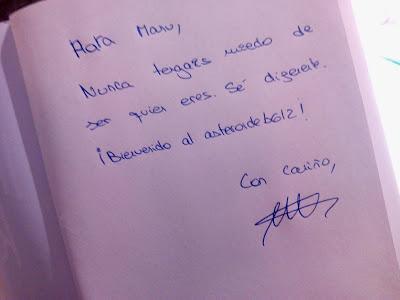 Para Manu,
Nunca tengais miedo de
ser quien eres. Sé diferente.
¡Bienvenido al asteroideb612!
Con cariño,